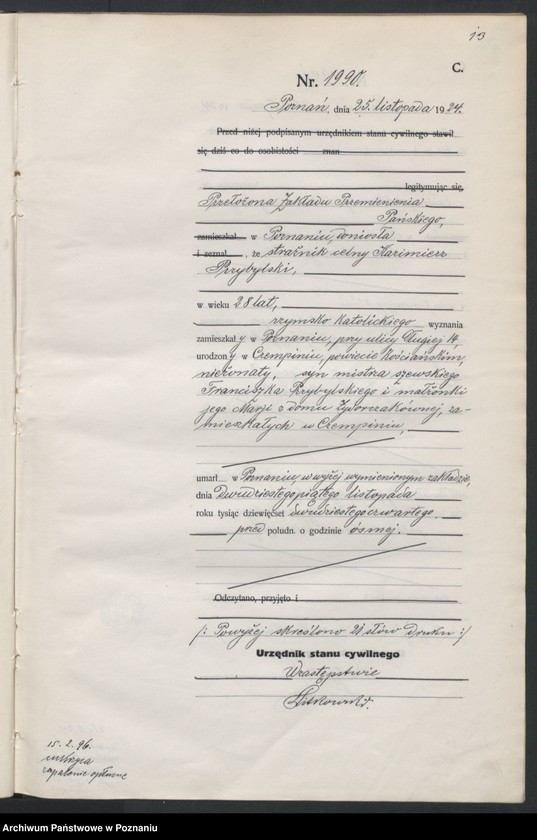 13
C.
Nr. 1990.
Poznań, dnia 25. listopada 1924.
Przed niżej podpisanym urzędnikiem stanu cywilnego stawił
się dziś co do osobistości znan
legitymując się
Przełożona Zakładu Przemienienia
Pańskiego,
zamieszkał w Poznaniu, doniosła
i zeznał, że strażnik celny Kazimierz
Przybylski,
w wieku 28 lat,
rzymsko katolickiego wyznania
zamieszkały w Poznaniu, przy ulicy Długiej 14,
urodzony w Czempiniu, powiecie Kościańskim,
nieżonaty, syn mistrza szewskiego
Franciszka Przybylskiego i małżonki
jego Marji z domu za-
mieszkałych w Czempiniu,
umarł w Poznaniu w wyżej wymienionym zakładzie,
dnia dwudziestegopiątego listopada
roku tysiąc dziewięćset dwudziestegoczwartego
przed połudn. o godzinie ósmej.
Odczytano, przyjęto i
/: Powyżej skreślono 21 słów druku :/
Urzędnik stanu cywilnego
W zastępstwie
15. 2. 96.
zapalenie opłucne
Archiwum Państwowe w Poznaniu